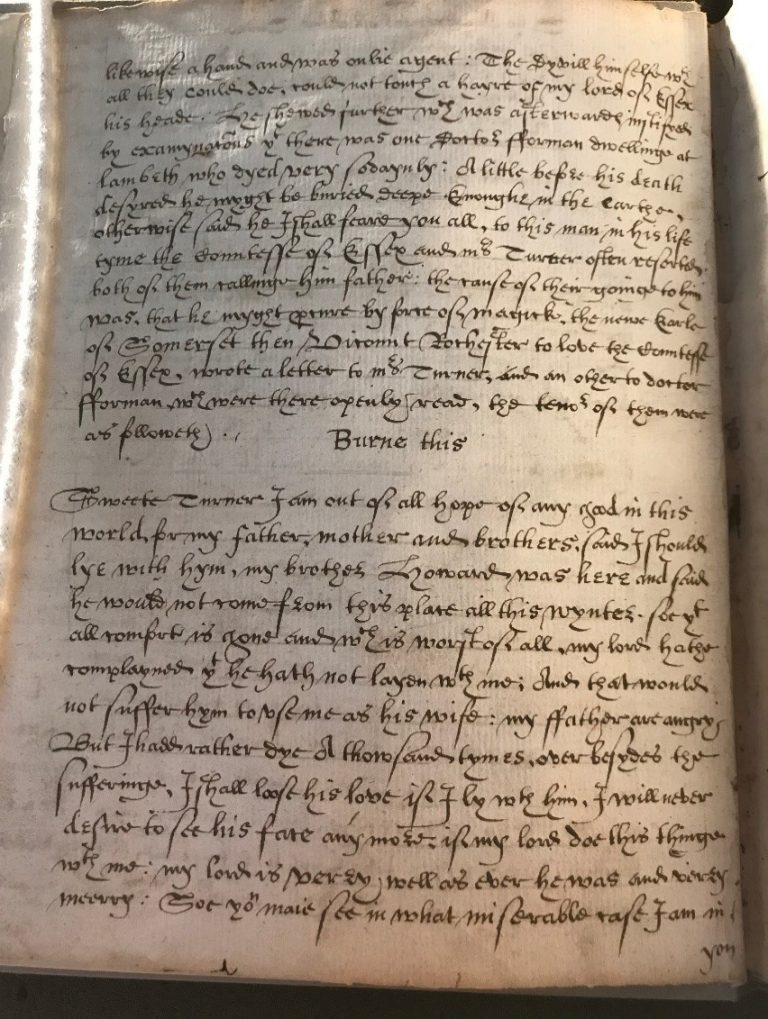 likewise a hand and was onlie agent: The Dyvill himselfe wth
all they Could doe, could not touch a hayre of my lord of Essex
his heade. He shewed further wch was afterwardes iustifyed
by examynations yt there was one Doctor fforman dwellinge at
lambeth who dyed very sodaynly: A little before his death
desyred he myght be buried deepe Enoughe in the Earthe,
otherwise said he I shall feare you all, to this man in his life
tyme the Countesse of Essex and mrs Turner often resorted
both of them callinge him father: the cause of their goinge to him
was, that he myght procure by force of magick, the newe Earle
of Somerset then Vicount Rochester to love the Countesse
of Essex, wrote a letter to mrs Turner, and an other to doctor
fforman, wch were there openly read, the tenor of them were
as followeth
Burne this
Sweete Turner I am out of all hope of any good in this
world, for my father, mother and brothers, said I should
lye with hym, my brother Howard was here and said
he would not come from thys place all this wynter. soe yt
all comfort is gone and wch is worst of all, my lord hathe
complayned yt he hath not layen wth me; And that I would
not suffer hym to vse me as his wife: my ffather are angry
But I had rather dye A thowsand tymes, over besydes the
sufferinge, I shall loose his love if I ly wth him, I will never
desire to see his face any more, if my lord doe this thinge
wth me: my lord is verey well as ever he was and verey
meerry: Soe yo maie see in what miserable case I am in
you